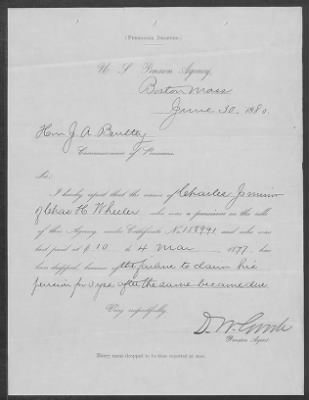 (Pensioner Dropped.)
U S Pension Agency,
Boston Mass
June 30, 1880
Hon J. A. Bentley
Commissioner of Pensions.
Sir:
I hereby report that the name of Charles J. minor
of Chas H. Wheeler, who was a pensioner on the rolls
of this Agency under Certificate No. 118991 and who was
last paid at $ 10 to 4 Mar 1877, has
been dropped, because of the failure to claim his
pension for 3 yrs. after the same became due.
Very respectfully
D. W.
Pension Agent.
Every name dropped to be thus reported at once.